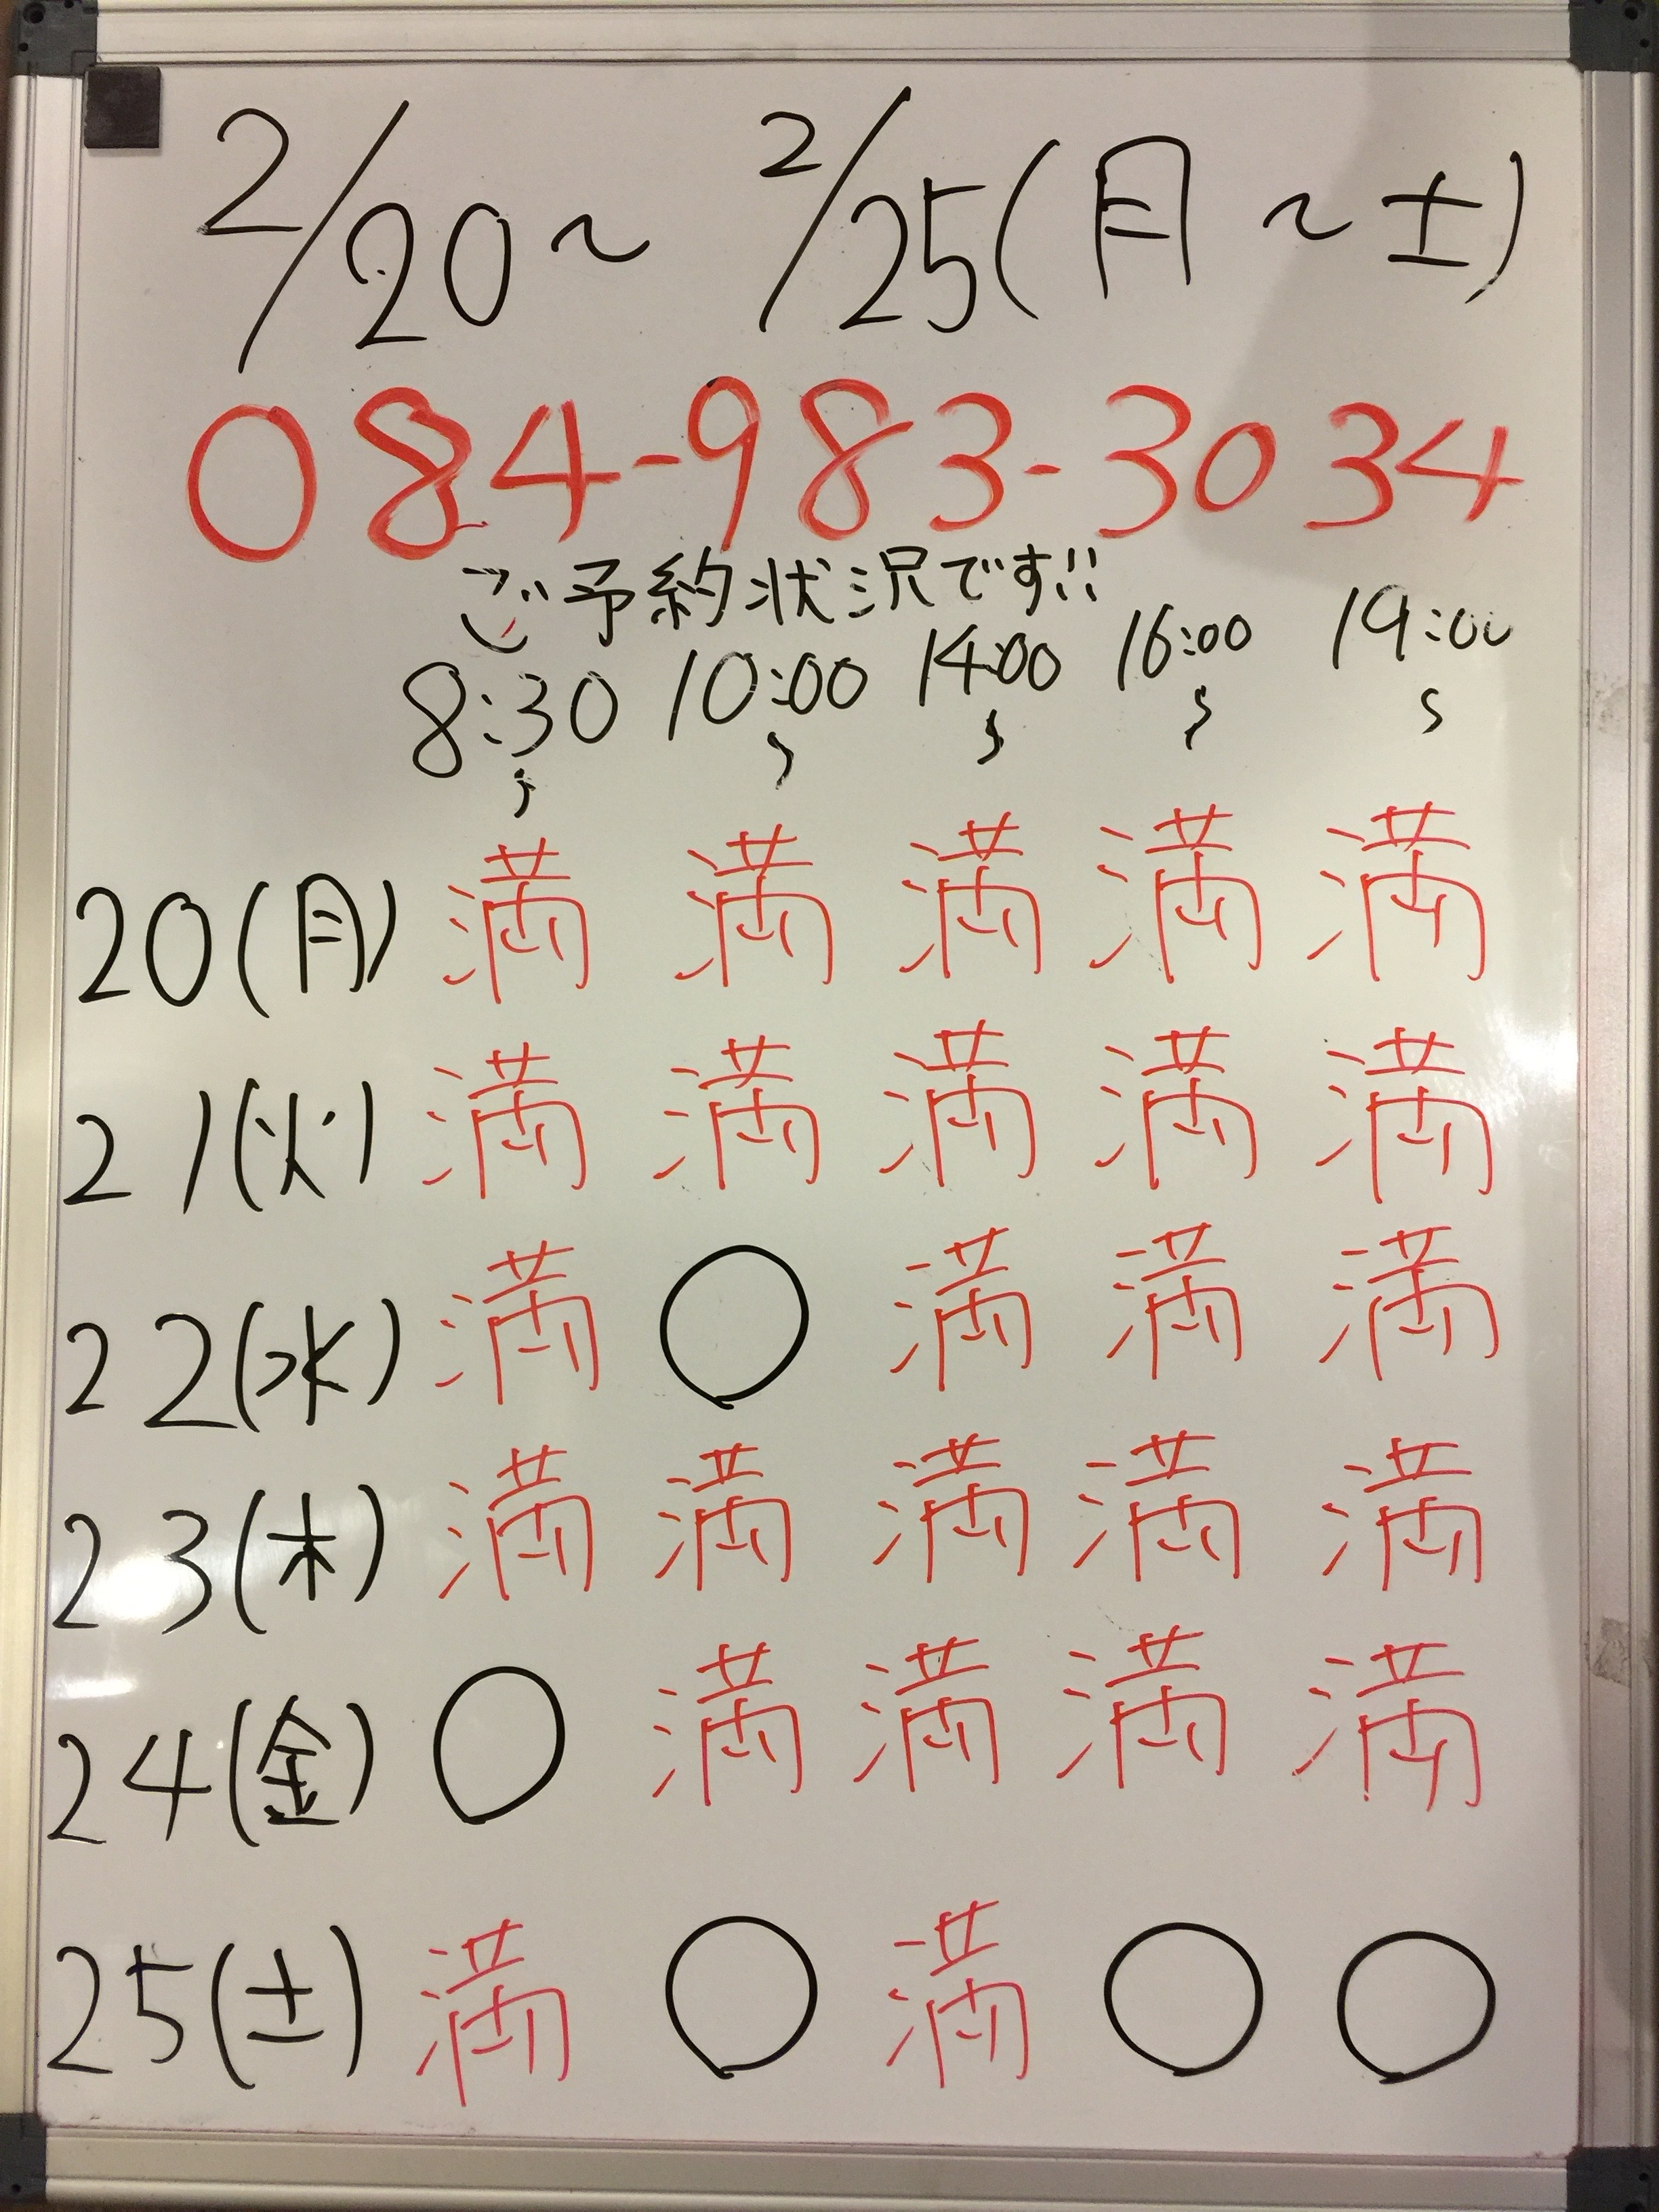 2/20～2/25(月～土)
084-983-3034
ご予約状況です!!
8:30 10:00 14:00 16:00 19:00
～ ～ ～ ～ ～
20(月) 満 満 満 満 満
21(火) 満 満 満 満 満
22(水) 満 ○ 満 満 満
23(木) 満 満 満 満 満
24(金) ○ 満 満 満 満
25(土) 満 ○ 満 ○ ○